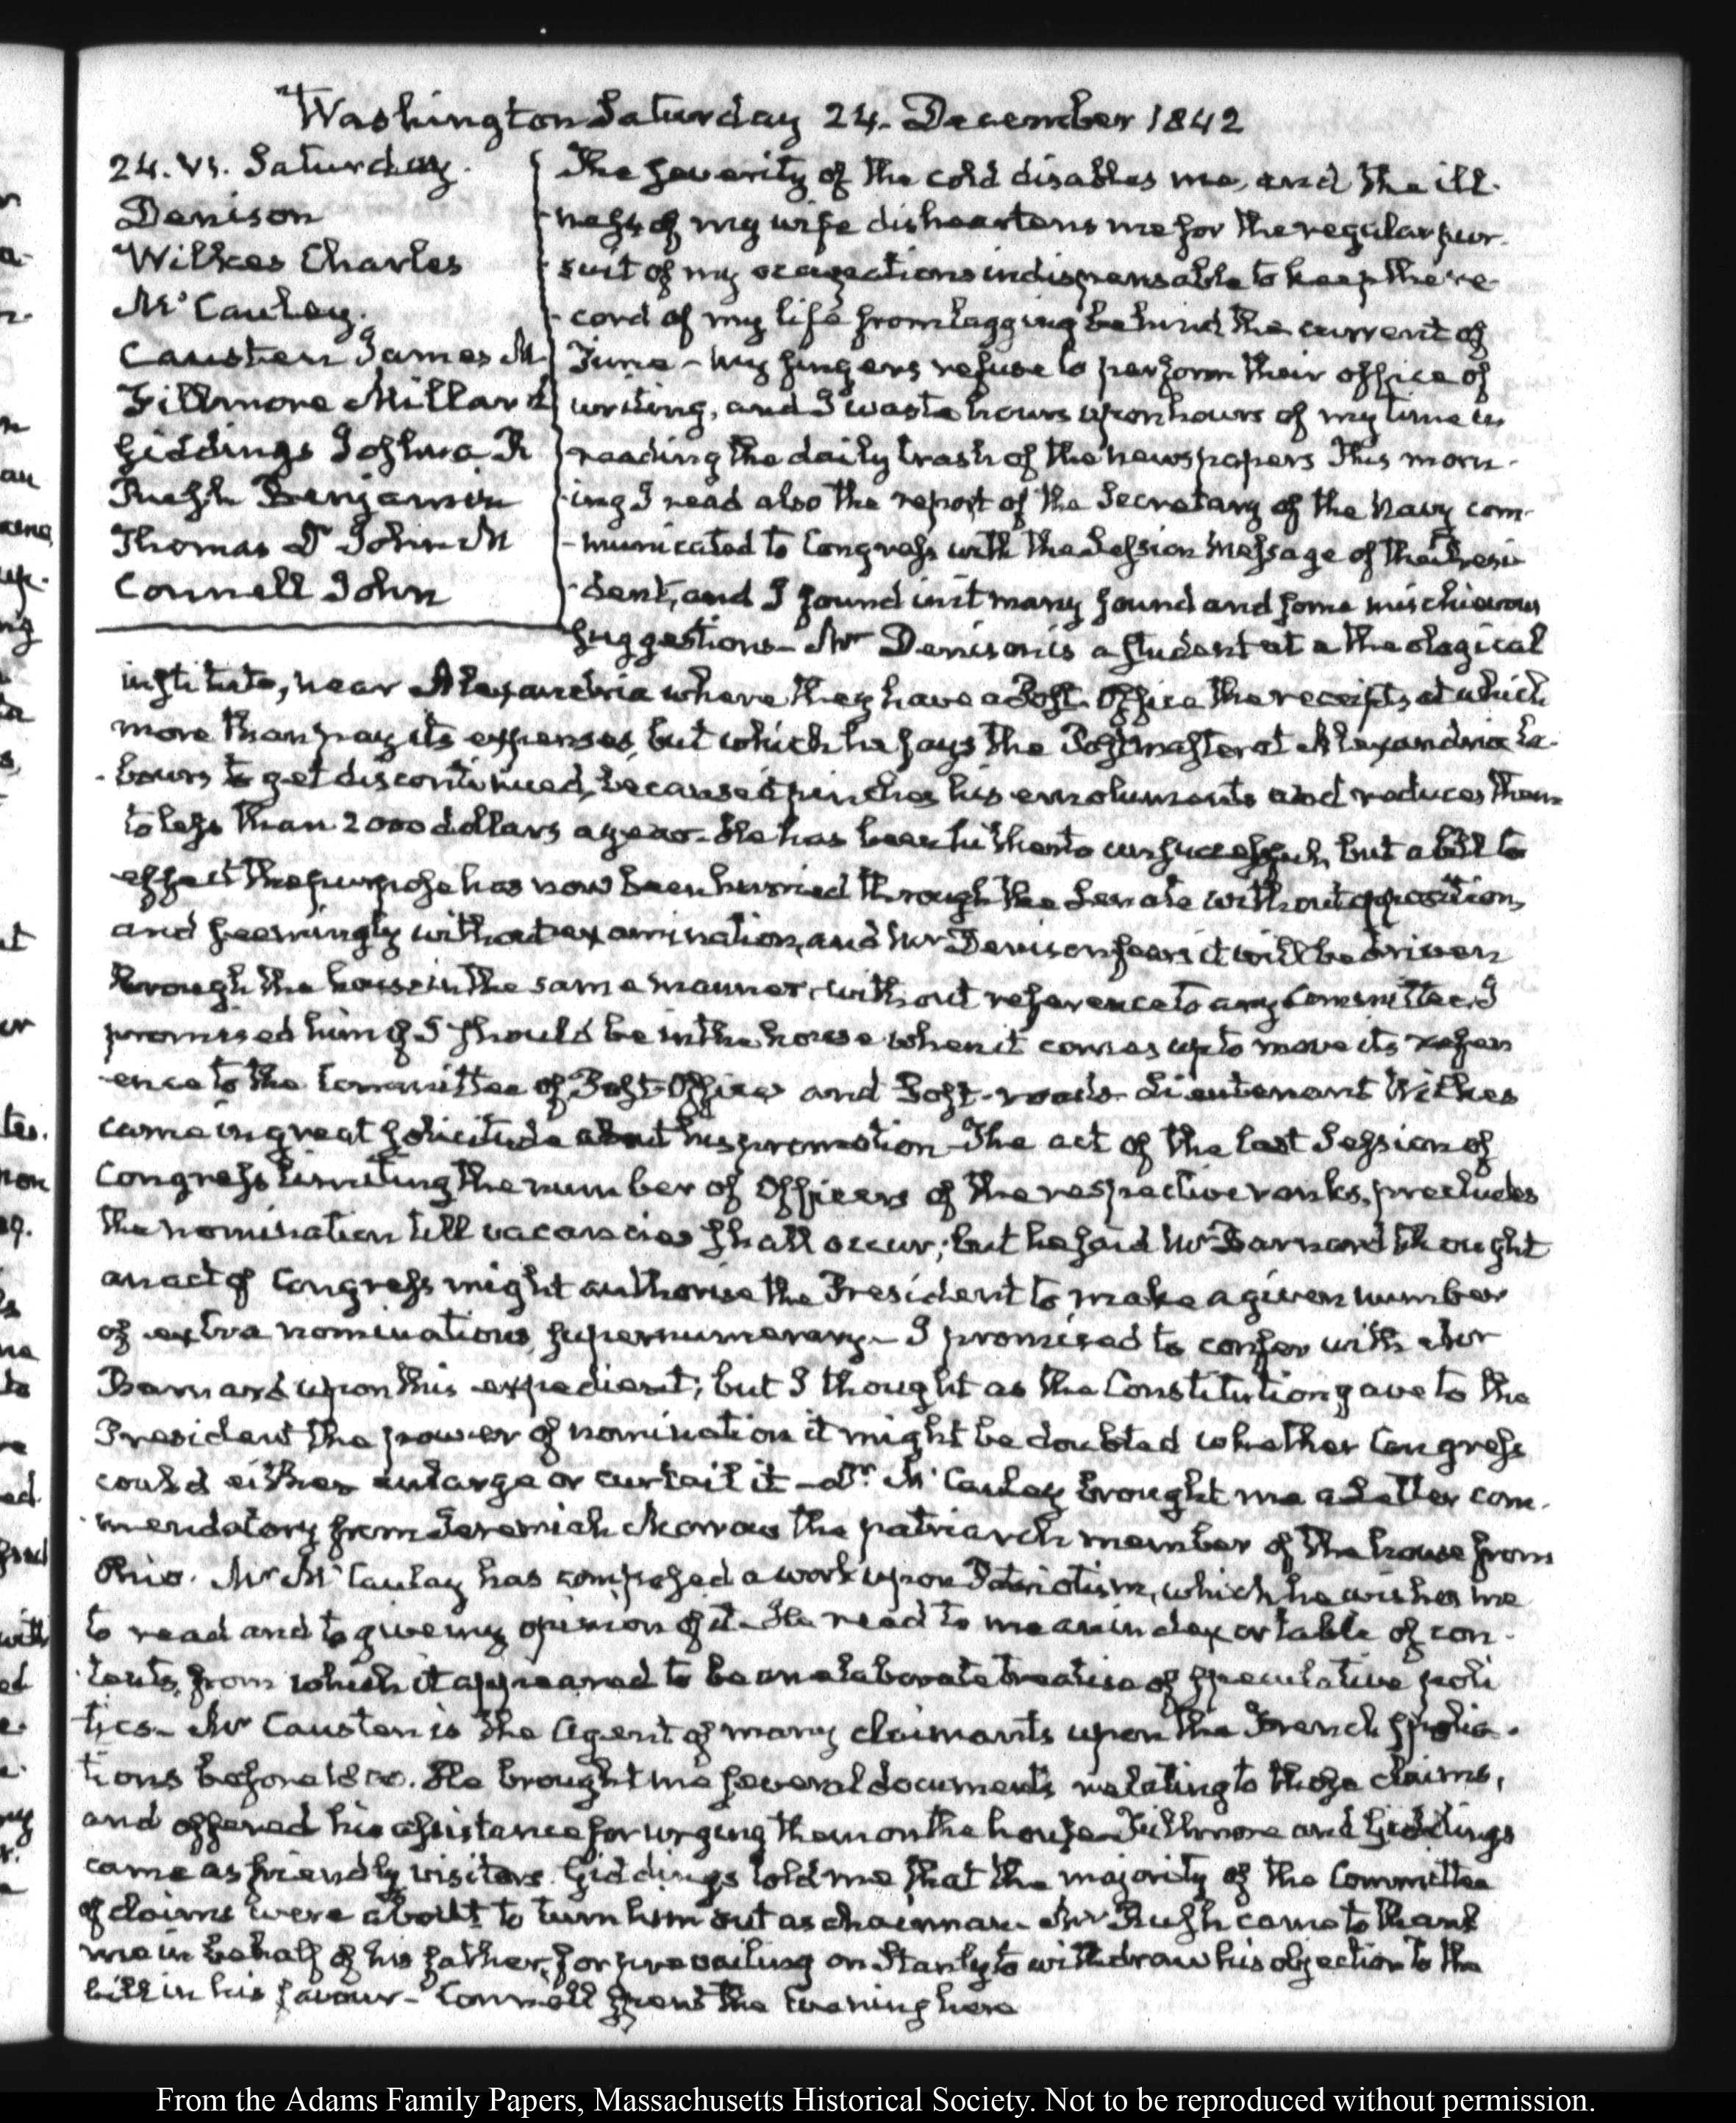 Washington Saturday 24. December 1842
24. VI. Saturday.
Denison
Wilkes Charles
McCauley.
Causten James M
Fillmore Millard
Giddings Joshua R
Rush Benjamin
Thomas Dr John M
Connell John
The severity of the cold disables me, and the ill-
ness of my wife disheartens me for the regular pur-
suit of my occupations indispensable to keep the re-
cord of my life from lagging behind the current of
Time — my fingers refuse to perform their office of
writing, and I waste hours upon hours of my time in
reading the daily trash of the newspapers This morn-
ing I read also the report of the Secretary of the Navy com-
municated to Congress with the Session Message of the Presi-
dent, and I found in it many sound and some mischievous
suggestions — Mr Denison is a student at a theological
institute, near Alexandria where they have a Post-Office the receipts at which
more than pay its expenses, but which he says the Postmaster at Alexandria la-
bours to get discontinued, because it pinches his emoluments and reduces them
to less than 2000 dollars a year. He has been hitherto unsuccessful, but a bill to
effect the purpose has now been hurried through the Senate without opposition,
and seemingly without examination, and Mr Denison fears it will be driven
through the house in the same manner, without reference to any Committee. I
promised him if I should be in the house when it comes up to move its refer
ence to the Committee of Post-Office and Post-roads. Lieutenant Wilkes
came in great solicitude about his promotion — The act of the last Session of
Congress limiting the number of Officers of the respective ranks, precludes
the nomination till vacancies shall occur; but he said Mr Barnard thought
an act of Congress might authorise the President to make a given number
of extra nominations supernumerary — I promised to confer with Mr
Barnard upon this expedient; but I thought as the Constitution gave to the
President the power of nomination it might be doubted whether Congress
could either enlarge or curtail it — Dr. McCauley brought me a Letter com-
mendatory from Jeremiah Morrow the patriarch member of the house from
Ohio. Mr McCauley has composed a work upon Patriotism, which he wishes me
to read and to give my opinion of it. He read to me an index or table of con-
tents, from which it appeared to be an elaborate treatise of speculative poli
tics — Mr Causten is the Agent of many claimants upon the French spolia-
tions before 1800. He brought me several documents relating to those claims,
and offered his assistance for urging them on the house — Fillmore and Giddings
came as friendly visitors. Giddings told me that the majority of the Committee
of claims were about to turn him out as chairman — Mr Rush came to thank
me in behalf of his father, for prevailing on Stanly to withdraw his objection to the
bill in his favour — Connell spent the Evening here
From the Adams Family Papers, Massachusetts Historical Society. Not to be reproduced without permission.